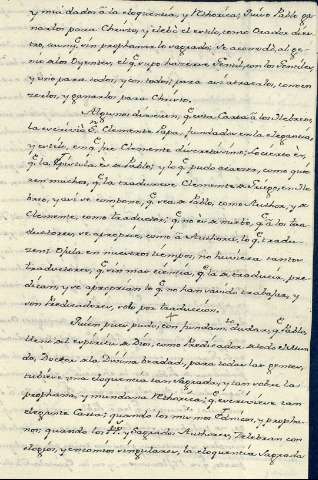 y mui dados à la eloquencia, y Rhetorica; Quiso Pablo ga-
narlos para Christo, y elebó el estilo, como Orador dies-
tro, aunq̃, sin prophanar lo sagrado, se acomodò, al ge-
nio de los Oyentes, el q̃ supo hazerse Gentil, con los Gentiles,
y uno para todos, y con todos; para assi atraerlos, conven
zerlos, y ganarlos para Christo.
Algunos dixeron, q̃ esta Carta à los Hebreos,
la escrivió Sn. Clemente Papa, fundados en la elegancia,
y estilo, en q̃ fue Clemente discretissimo; lo cierto es,
q̃ la Epistola es de Pablo; y lo q̃ pudo acaezer, como quie
ren muchos, q̃ la traduxesse Clemente de Griego, en He
breo, y assi se compone, q̃ sea de Pablo, como Author, y de
Clemente, como traductor; q̃ no es de nuebo, q̃ à los tra
ductores, se apropie, como à Authores, lo q̃ tradu-
zen; Ojala en nuestros tiempos, no huviera tantos
traductores, q̃ sin mas ciencia, q̃ la de traducir, pre-
dican, y se apropian lo q̃ no han savido trabajar, y
son Predicadores, solo por traduccion.
Quien pues pudo, con fundamto. dudar, q̃ Pablo,
lleno del espiritu de Dios, como Predicador de todo el Mun
do, Doctor de la Divina verdad, para todas las gentes,
tubiesse una eloquencia tan sagrada, y tan sobre la
prophana, y mundana Rhetorica; q̃ escriviesse tan
elegante Carta; quando los mismos Ethnicos, y propha-
nos; quando los PPs. y Sagrados Authores, Zelebran con
elogios, y encomios singulares, la eloquencia Sagrada